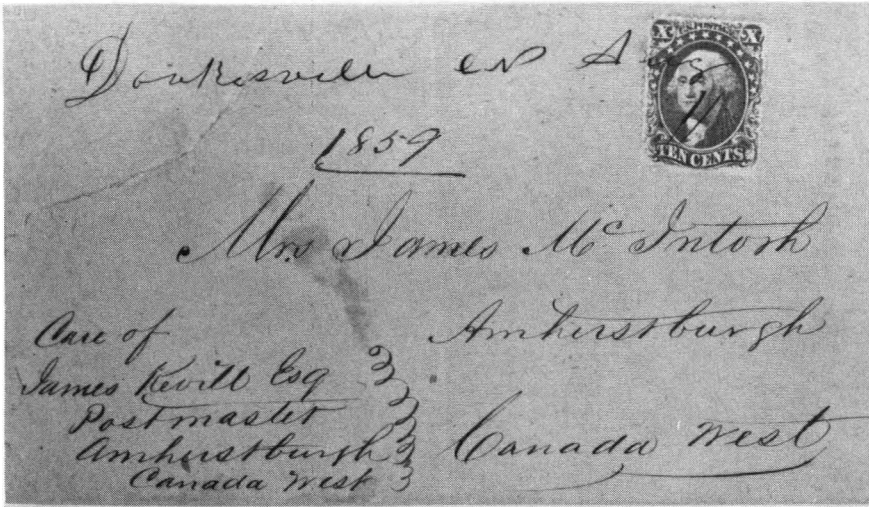 Aug
1859
X U.S. POSTAGE X
TEN CENTS
Mrs James Mc Intosh
Amherstburgh
Canada West
Care of
James Kevill Esq
Postmaster
Amherstburgh
Canada West